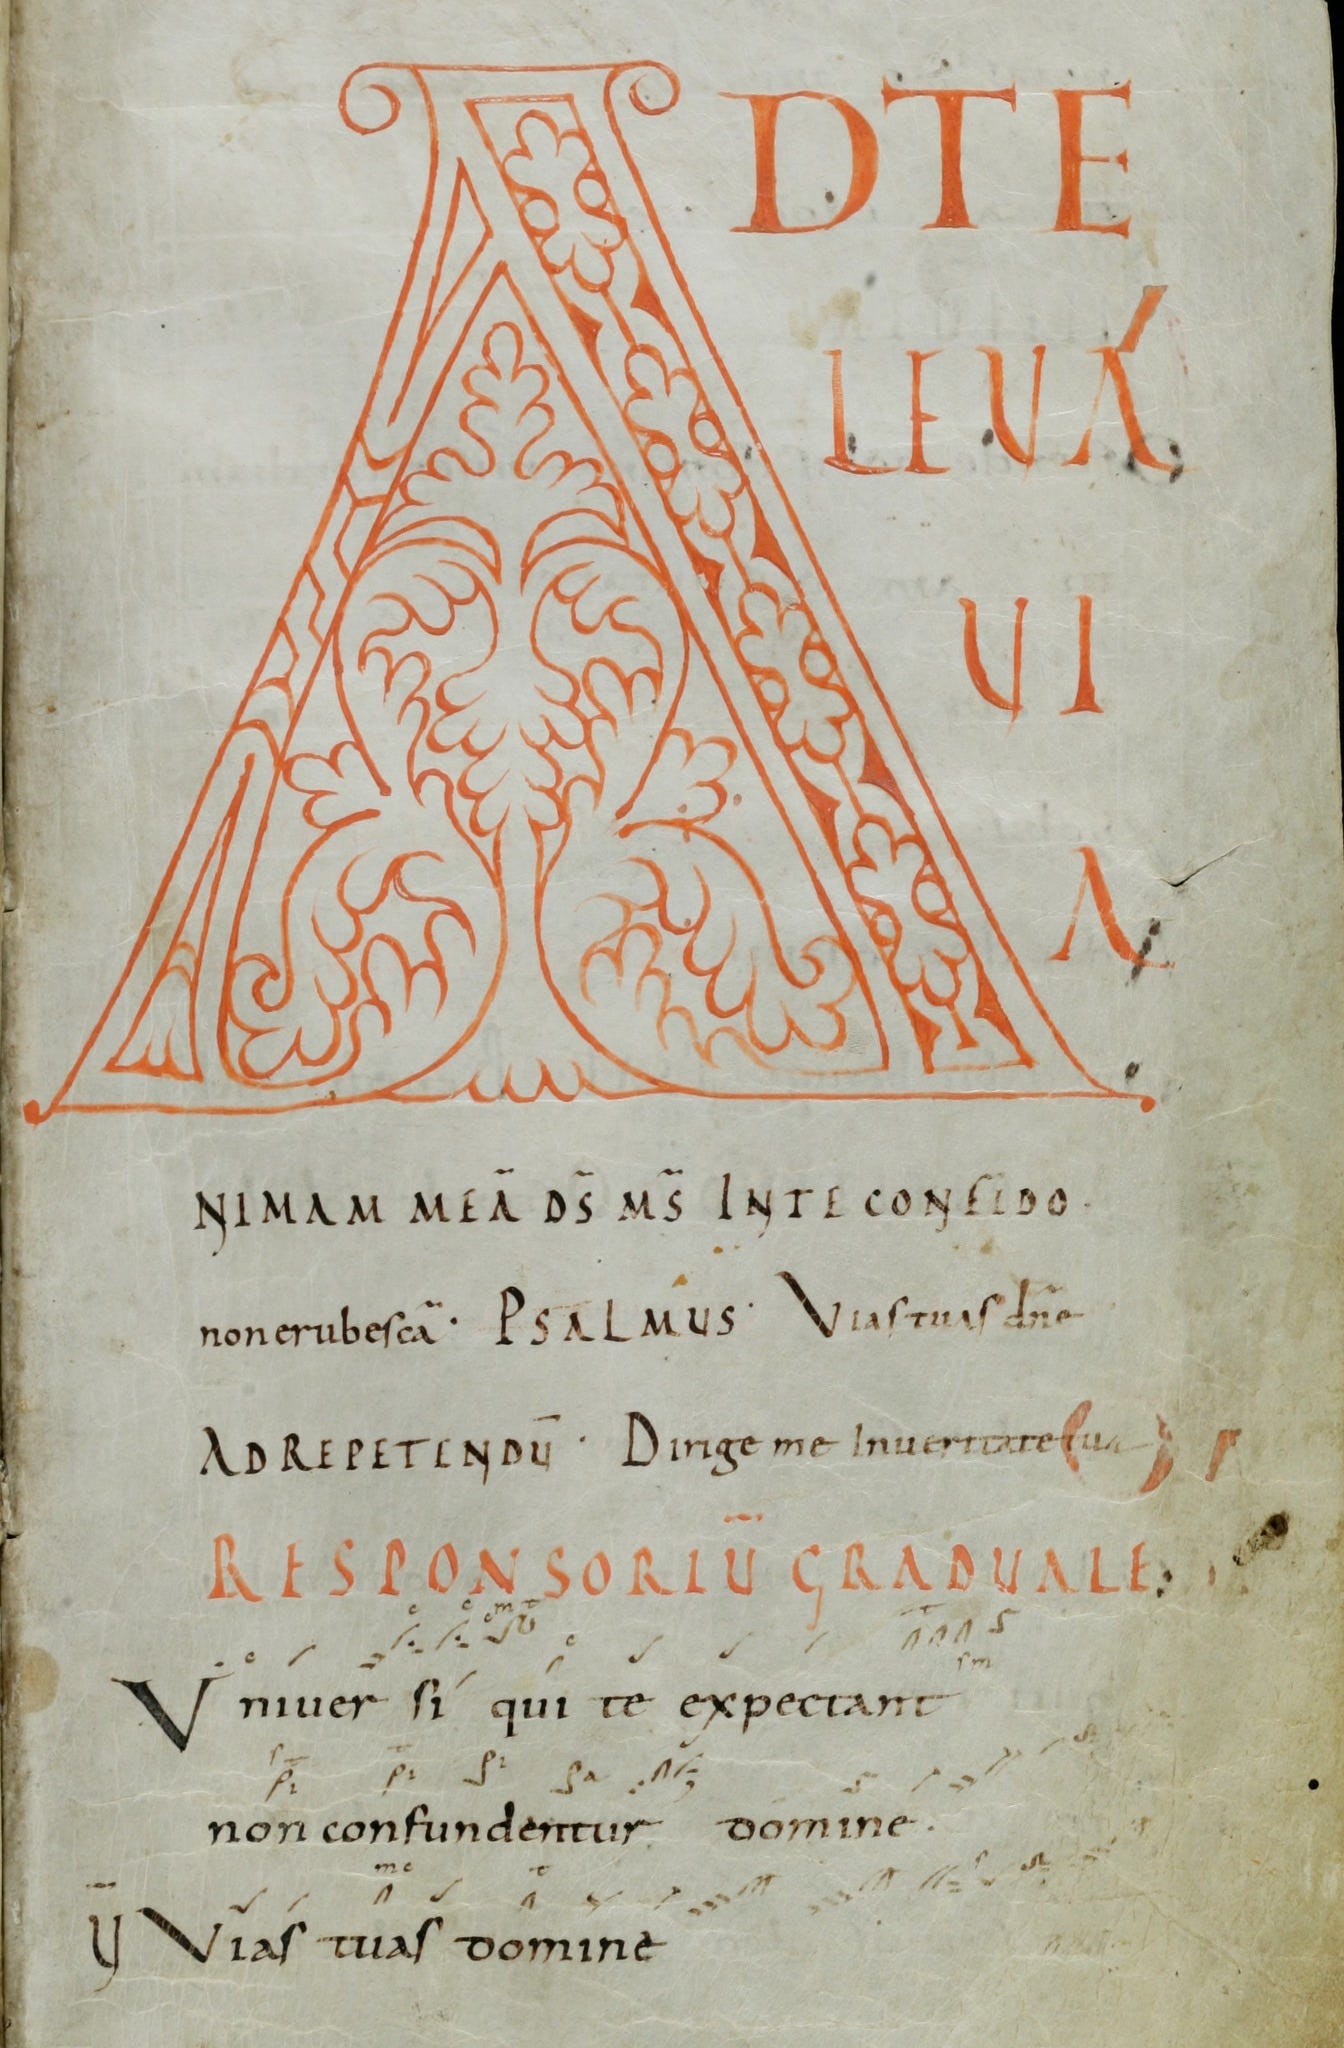 ADTE
LEVA
UI
A
NIMAM MEA̅ DS̅ MS̅ INTE CONFIDO.
non erubesca̅. PSALMUS. Vias tuas dn̅e
AD REPETENDU̅. Dirige me In ueritate tua
RESPONSORIU̅ GRADUALE.
Vniuer si qui te expectant
non confundentur domine.
V̅ Vias tuas domine